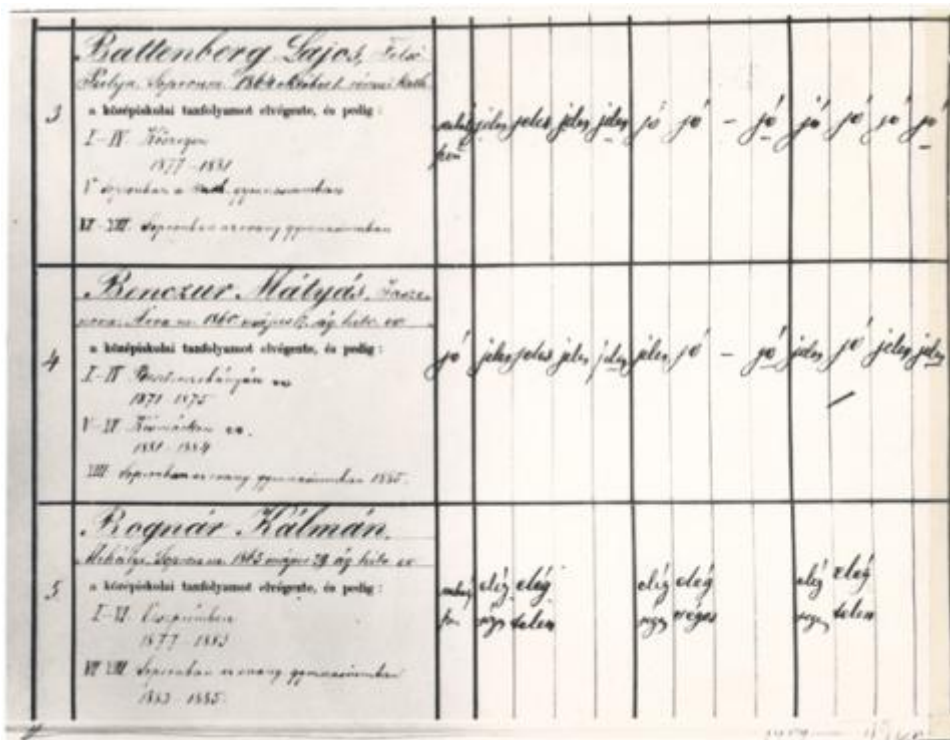 3
Battenberg Lajos, Felső
Sopronm. 1864 október 1. római kath
a középiskolai tanfolyamot elvégezte, és pedig:
I–IV Kőszegen
1877–1881
V Sopronban a kath. gymnasiumban
VI–VIII. Sopronban az evang. gymnasiumban
jeles jeles jeles jeles jó jó – jó jó jó jó jó
4
Benczur Mátyás,
Árva m. 1860 május ág. hitv. ev
a középiskolai tanfolyamot elvégezte, és pedig:
I–IV ev
1871–1875
ev.
1881–1884
VIII. Sopronban az evang. gymnasiumban 1885.
jó jeles jeles jeles jeles jeles jó – jó jeles jó jeles jeles
5
Bognár Kálmán,
Mihályi, Sopron m. 1863 május 29 ág. hitv. ev
a középiskolai tanfolyamot elvégezte, és pedig:
1877–1883
VII VIII. Sopronban az evang. gymnasiumban
1883–1885.
elég elég elég elég elég elég
telen séges telen